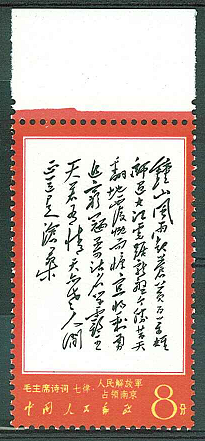 鍾山风雨起苍黄百万雄
師过大江虎踞龍盘今胜昔天
翻地覆慨而慷宜将剩勇
追窮寇不可沽名学霸王
天若有情天亦老人间
正道是滄桑
毛主席诗词 七律·人民解放軍
占领南京
中国人民邮政 8分